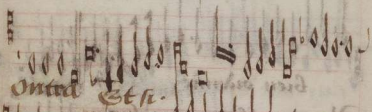 ontra
Et si.